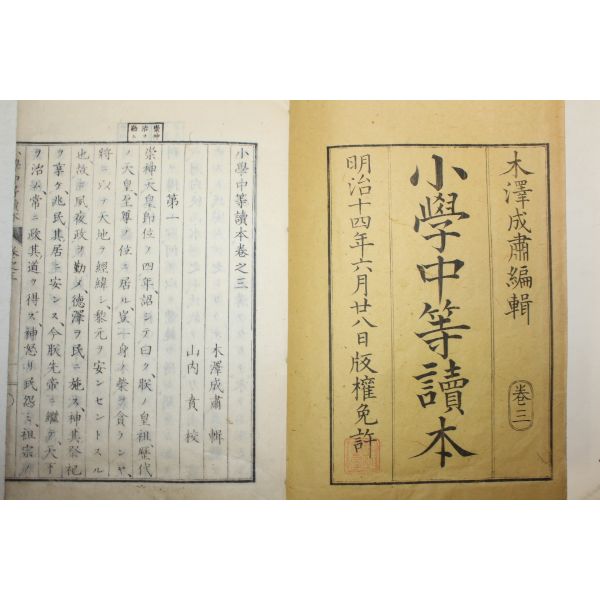 木澤成肅編輯
卷三
小學中等讀本
明治十四年六月廿八日版權免許
小學中等讀本卷之三
木澤成肅 輯
山内 貢 校
第一
崇神天皇卽位ノ四年、詔シテ曰ク、朕ノ皇祖、歷代
ノ天皇、至尊ノ位ニ居ル、豈一身ノ榮ヲ貪ランヤ、
將ニ以テ天地ヲ經緯シ、黎元ヲ安ンセントスル
也、故ニ夙夜政ヲ勤メ、德澤ヲ民ニ施ス、神其祭祀
ヲ享ケ、兆民其居ニ安ンス、今朕先帝ニ繼テ、天下
ヲ治ム、常ニ政其道ヲ得ズ、神怒リ、民怨ミ、祖宗ノ
小學中等讀本